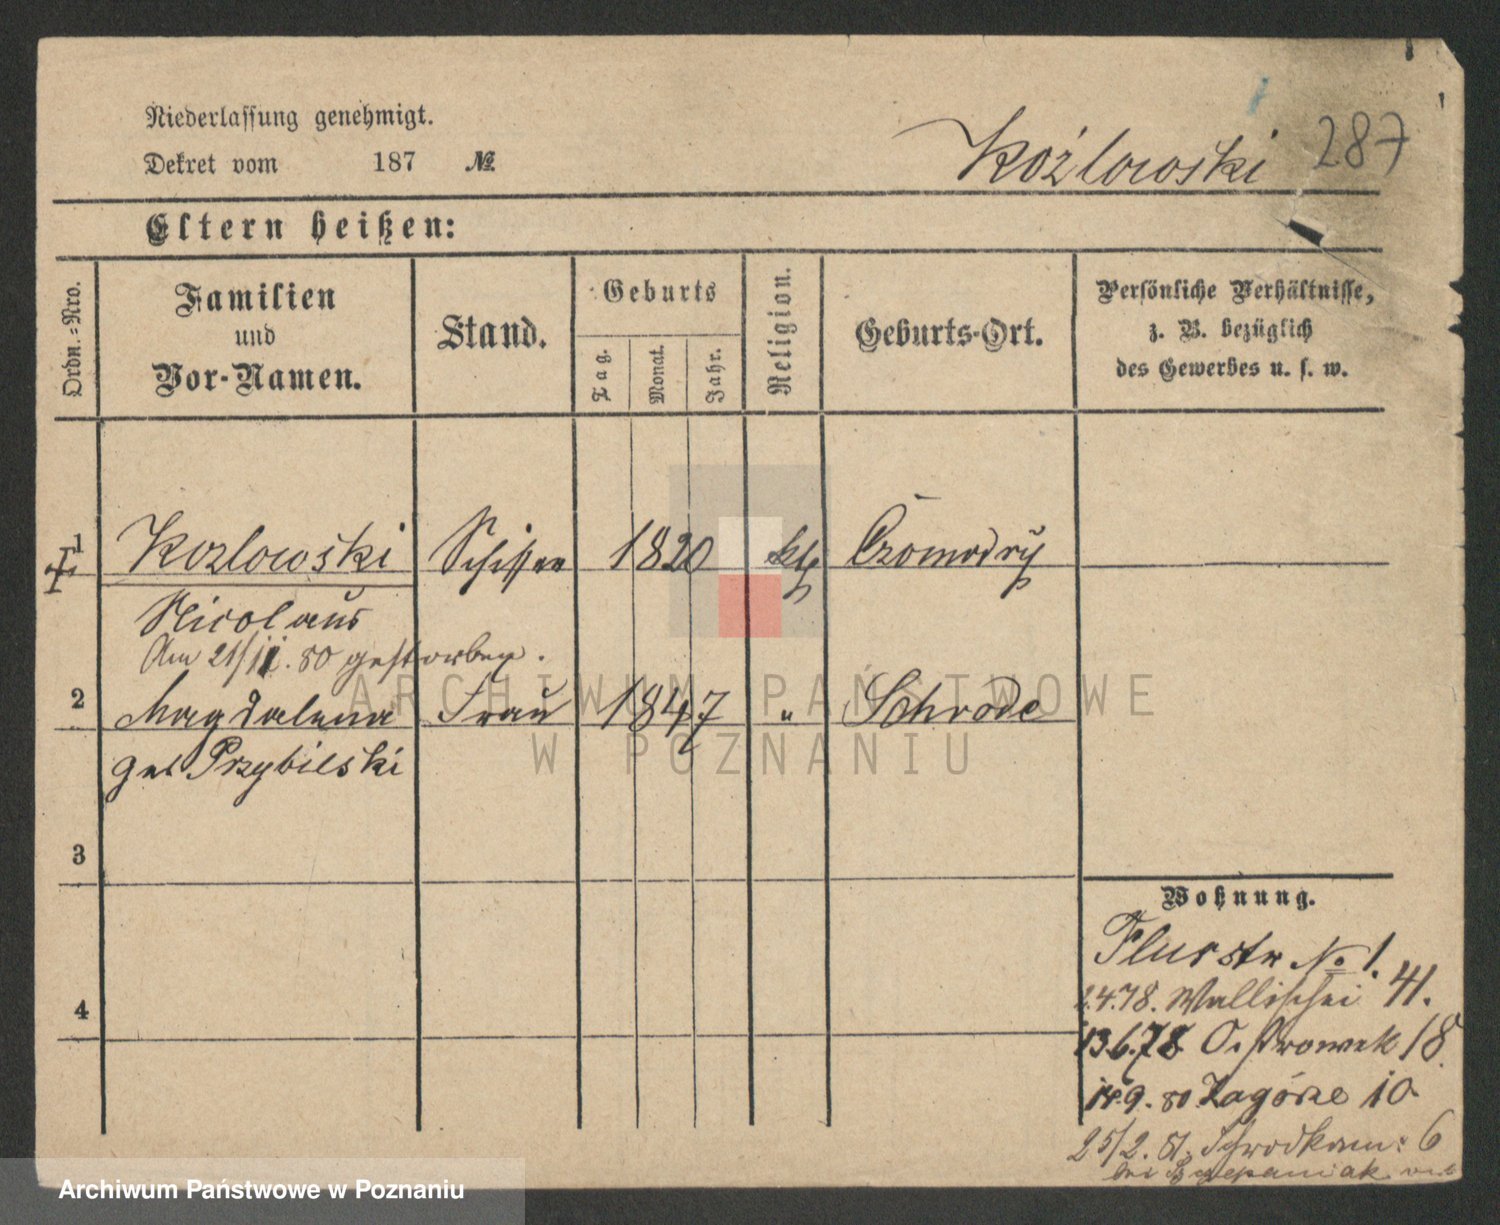 Niederlassung genehmigt.
Dekret vom 187 №
Koźlowski 287
Eltern heißen:
Ordn.=Nro.
Familien
und
Vor-Namen.
Stand.
Geburts
Tag.
Monat.
Jahr.
Religion.
Geburts-Ort.
Persönliche Verhältnisse,
z. B. bezüglich
des Gewerbes u. s. w.
1 Kozlowski Schiffer 1820 kth
Nicolaus
Am 21/11. 80 gestorben.
2 Magdalena Frau 1847 " Schrode
geb Przybilski
3
4
Wohnung.
Flurstr No 1.
2.4.78. Wallischei 41.
13.6.78 Ostrowek 18.
9. 80 Zagórze 10
25/2. 81. Schrodkam: 6
bei Szczepaniak
ARCHIWUM PAŃSTWOWE
W POZNANIU
Archiwum Państwowe w Poznaniu